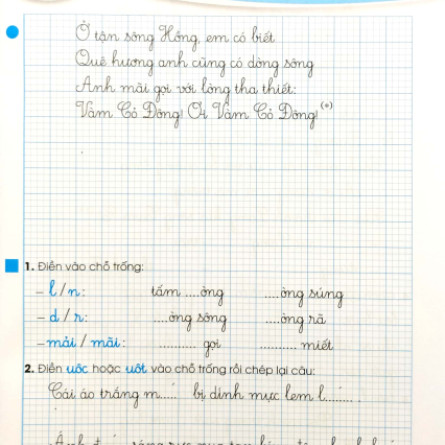 Ở tận sông Hồng, em có biết
Quê hương anh cũng có dòng sông
Anh mãi gọi với lòng tha thiết:
Vàm Cỏ Đông! Ơi Vàm Cỏ Đông! (*)
1. Điền vào chỗ trống:
– l / n: tấm ....òng ....òng súng
– d / r: ....òng sông ....òng rã
– mải / mãi: .......... gọi .......... miết
2. Điền uôc hoặc uôt vào chỗ trống rồi chép lại câu:
Cái áo trắng m..... bị dính mực lem l........ .